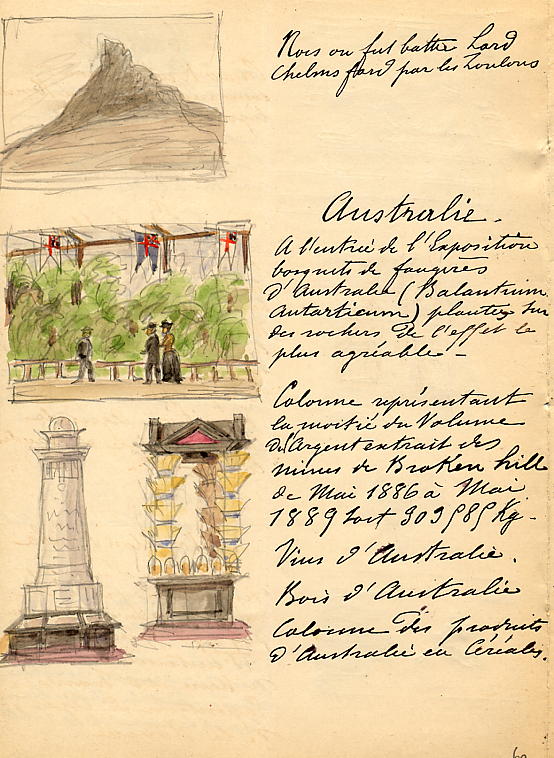 Rocs ou fut battu Lord
Chelmsford par les Zoulous
Australie.
A l'entrée de l'Exposition
bosquets de fougères
d'Australie (Balantium
Antarticum) plantées sur
des rochers de l'effet le
plus agréable -
Colonne représentant
la moitié du Volume
d'Argent extrait des
mines de Broken hill
de Mai 1886 à Mai
1889 soit 909585 Kg.
Vins d'Australie.
Bois d'Australie
Colonne des produits
d'Australie en Céréales.